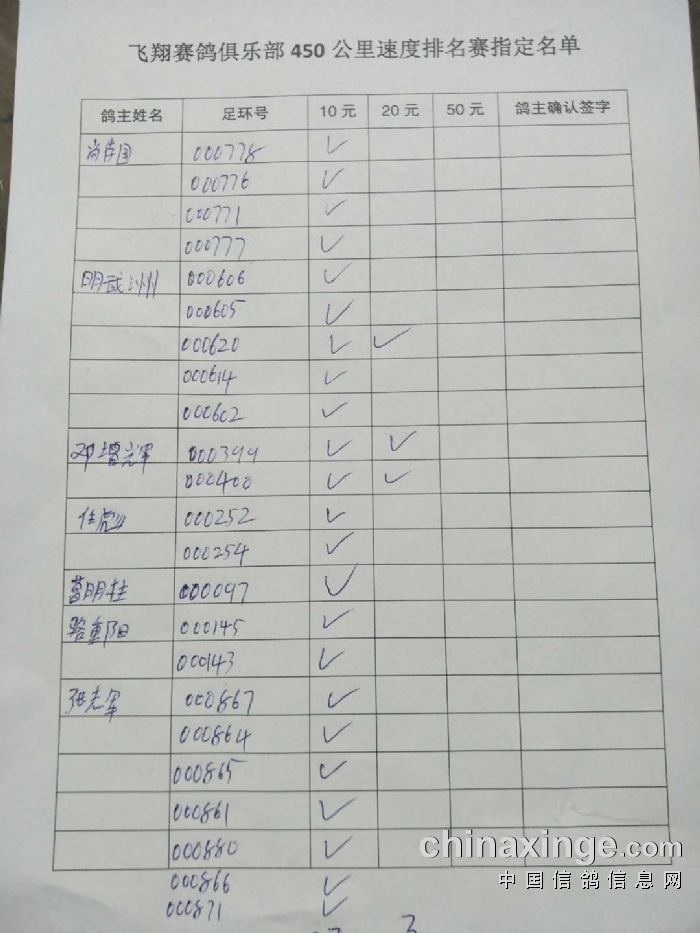 飞翔赛鸽俱乐部 450 公里速度排名赛指定名单
鸽主姓名 足环号 10 元 20 元 50 元 鸽主确认签字
尚存国 000778 ✓
000776 ✓
000771 ✓
000777 ✓
明武洲 000606 ✓
000605 ✓
000620 ✓ ✓
000614 ✓
000602 ✓
邓增辉 000399 ✓ ✓
000400 ✓ ✓
任彪 000252 ✓
000254 ✓
葛明柱 000097 ✓
路重阳 000145 ✓
000143 ✓
张志军 000867 ✓
000864 ✓
000865 ✓
000861 ✓
000880 ✓
000866 ✓
000871 ✓
chinaxinge.com
中国信鸽信息网